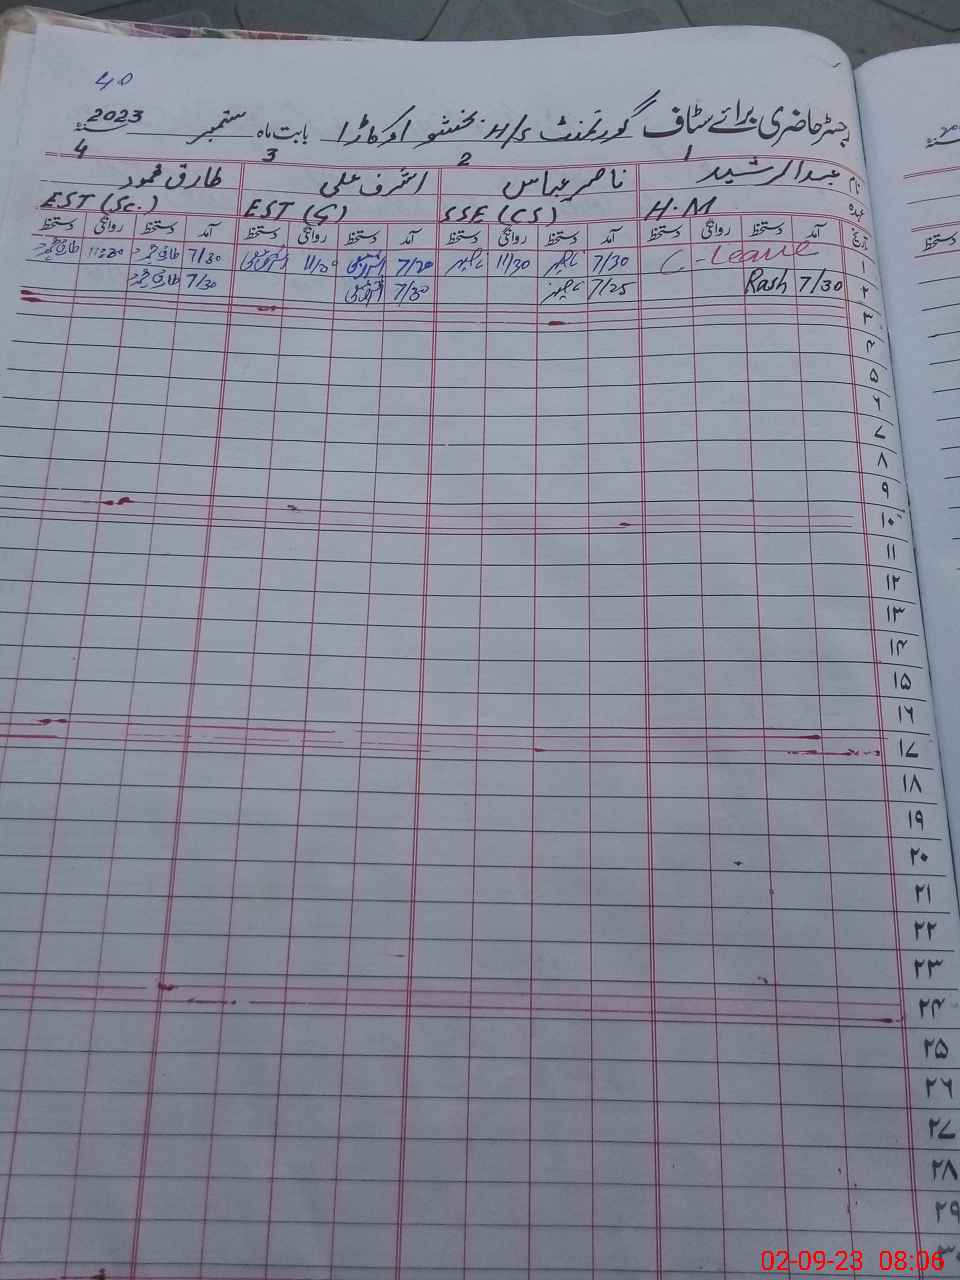 40
رجسٹر حاضری برائے سٹاف گورنمنٹ H/S بخشو اوکاڑا بابت ماہ ستمبر سنہ 2023
1 2 3 4
نام عبدالرشید ناصر عباس اشرف علی طارق محمود
عہدہ H.M SSE (CS) EST (G) EST (Sc.)
تاریخ آمد دستخط روانگی دستخط آمد دستخط روانگی دستخط آمد دستخط روانگی دستخط آمد دستخط روانگی دستخط
۱ C-leave 7/30 11/30 7/20 11/30 7/30 11:30
۲ 7/30 Rash 7/25 7/30 7/30
۳
۴
۵
۶
۷
۸
۹
۱۰
۱۱
۱۲
۱۳
۱۴
۱۵
۱۶
۱۷
۱۸
۱۹
۲۰
۲۱
۲۲
۲۳
۲۴
۲۵
۲۶
۲۷
۲۸
۲۹
۳۰
02-09-23 08:06